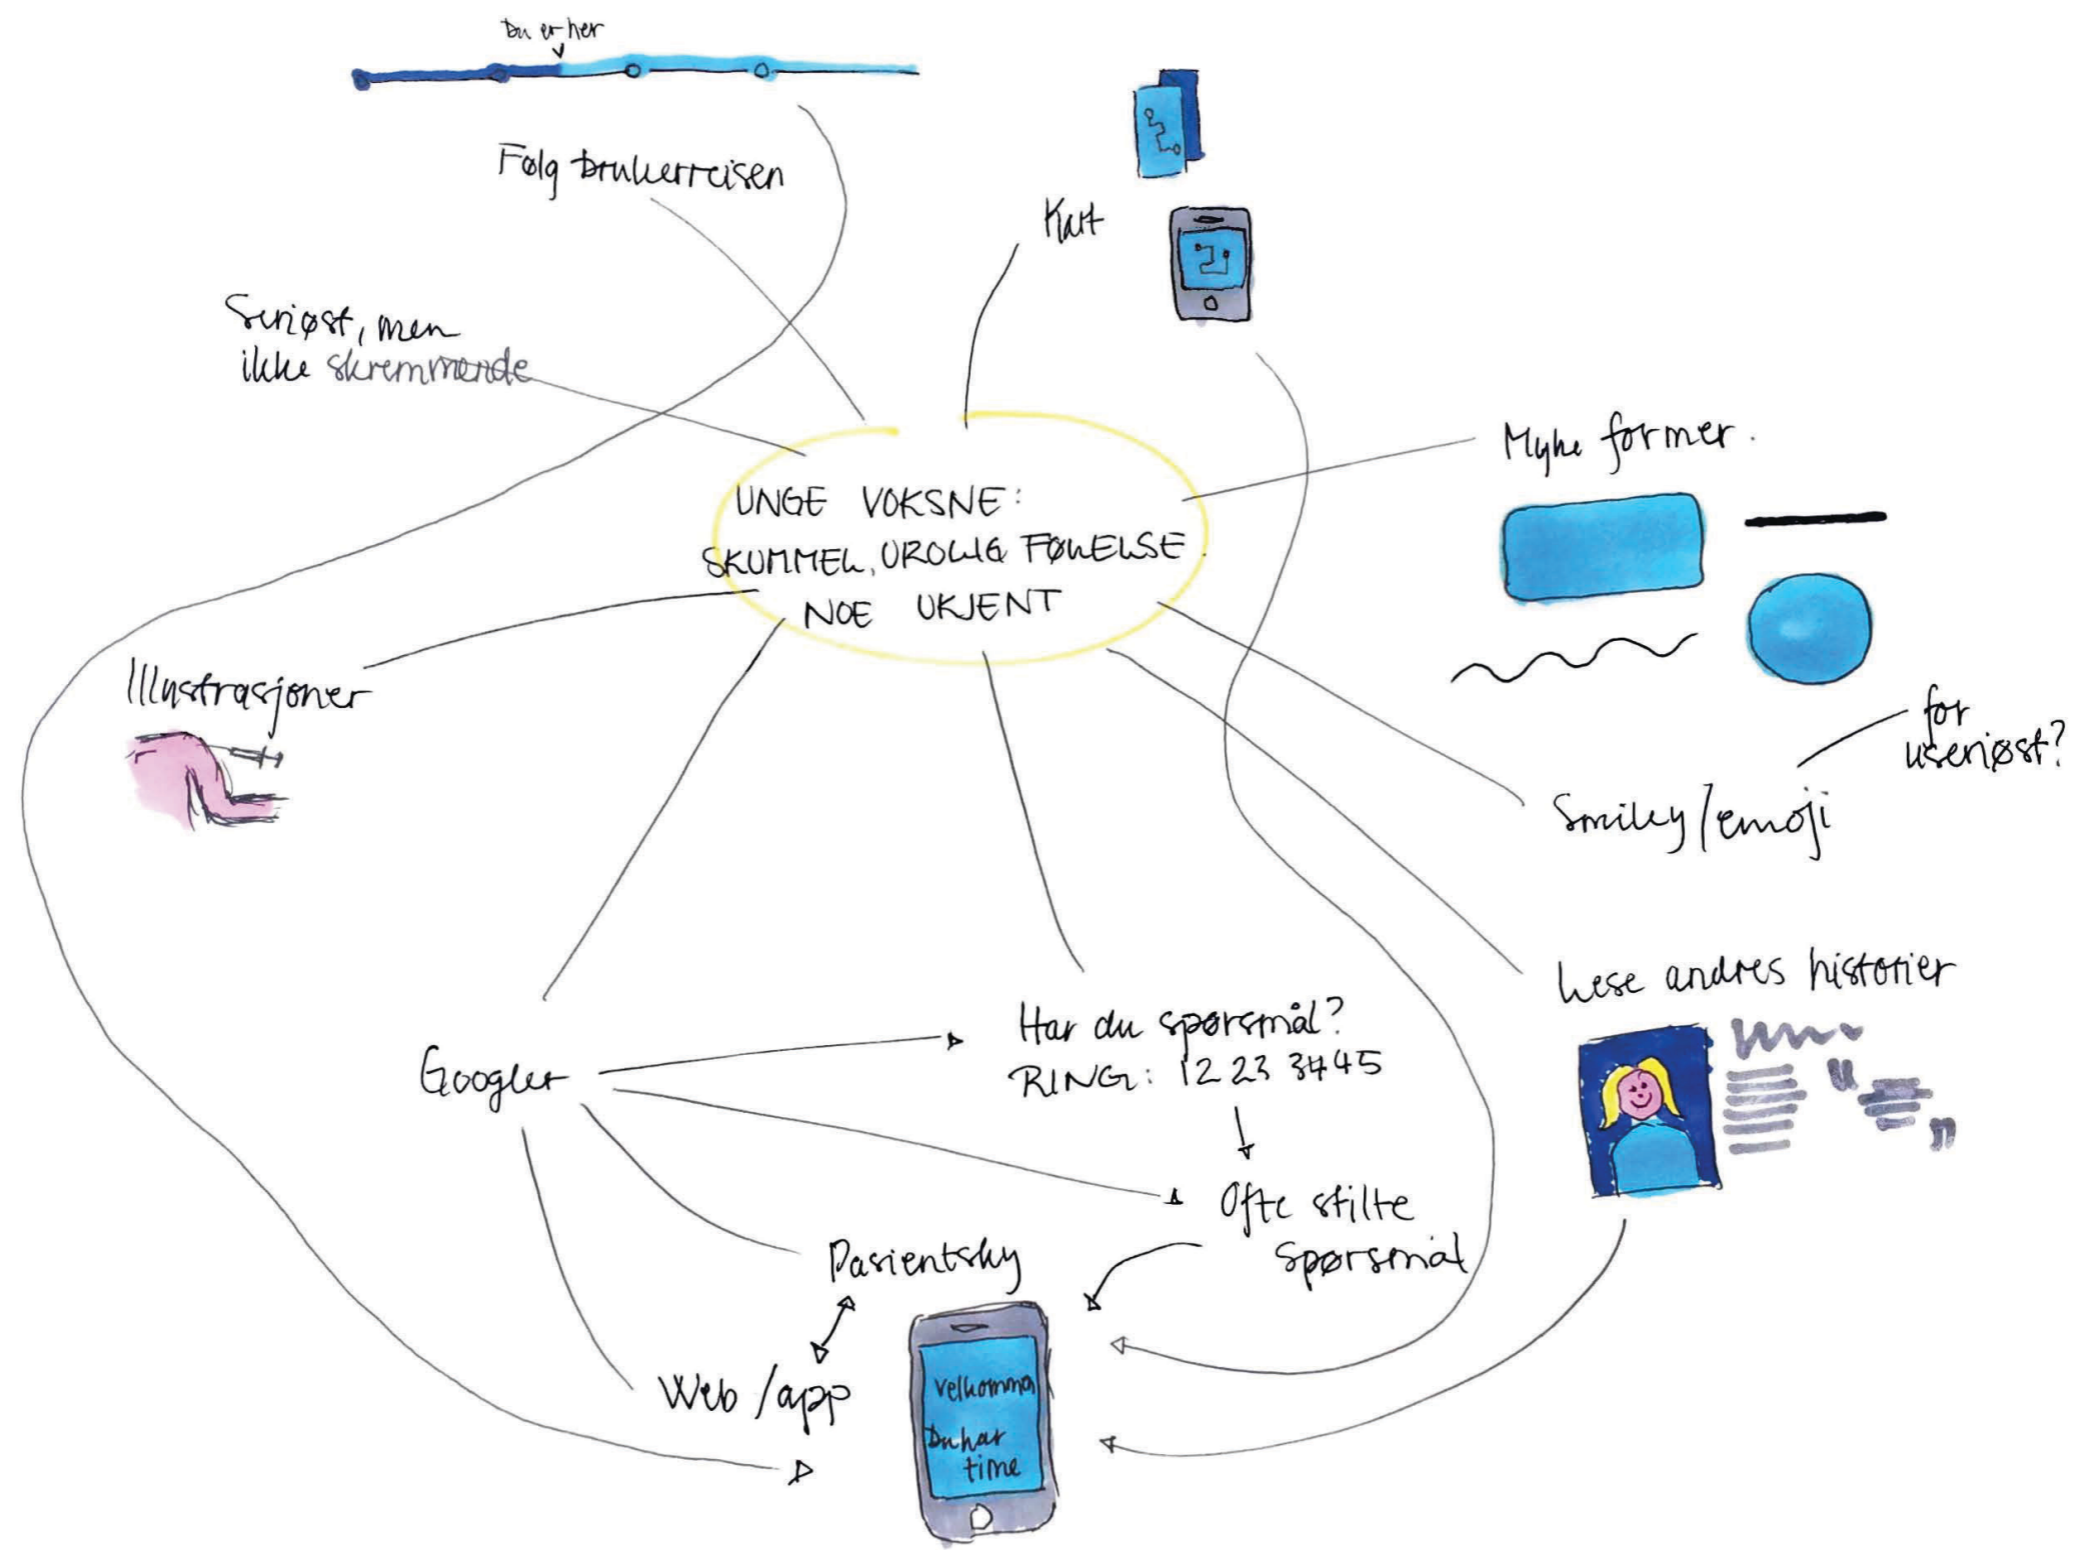 Du er her
Følg brukerreisen
Kart
Seriøst, men
ikke skremmende
Myke former.
UNGE VOKSNE:
SKUMMEL, UROLIG FØLELSE.
NOE UKJENT
Illustrasjoner
for
useriøst?
Smiley/emoji
Lese andres historier
Har du spørsmål?
RING: 12 23 34 45
Googler
Ofte stilte
spørsmål
Pasientsky
Web/app
Velkommen
Du har
time